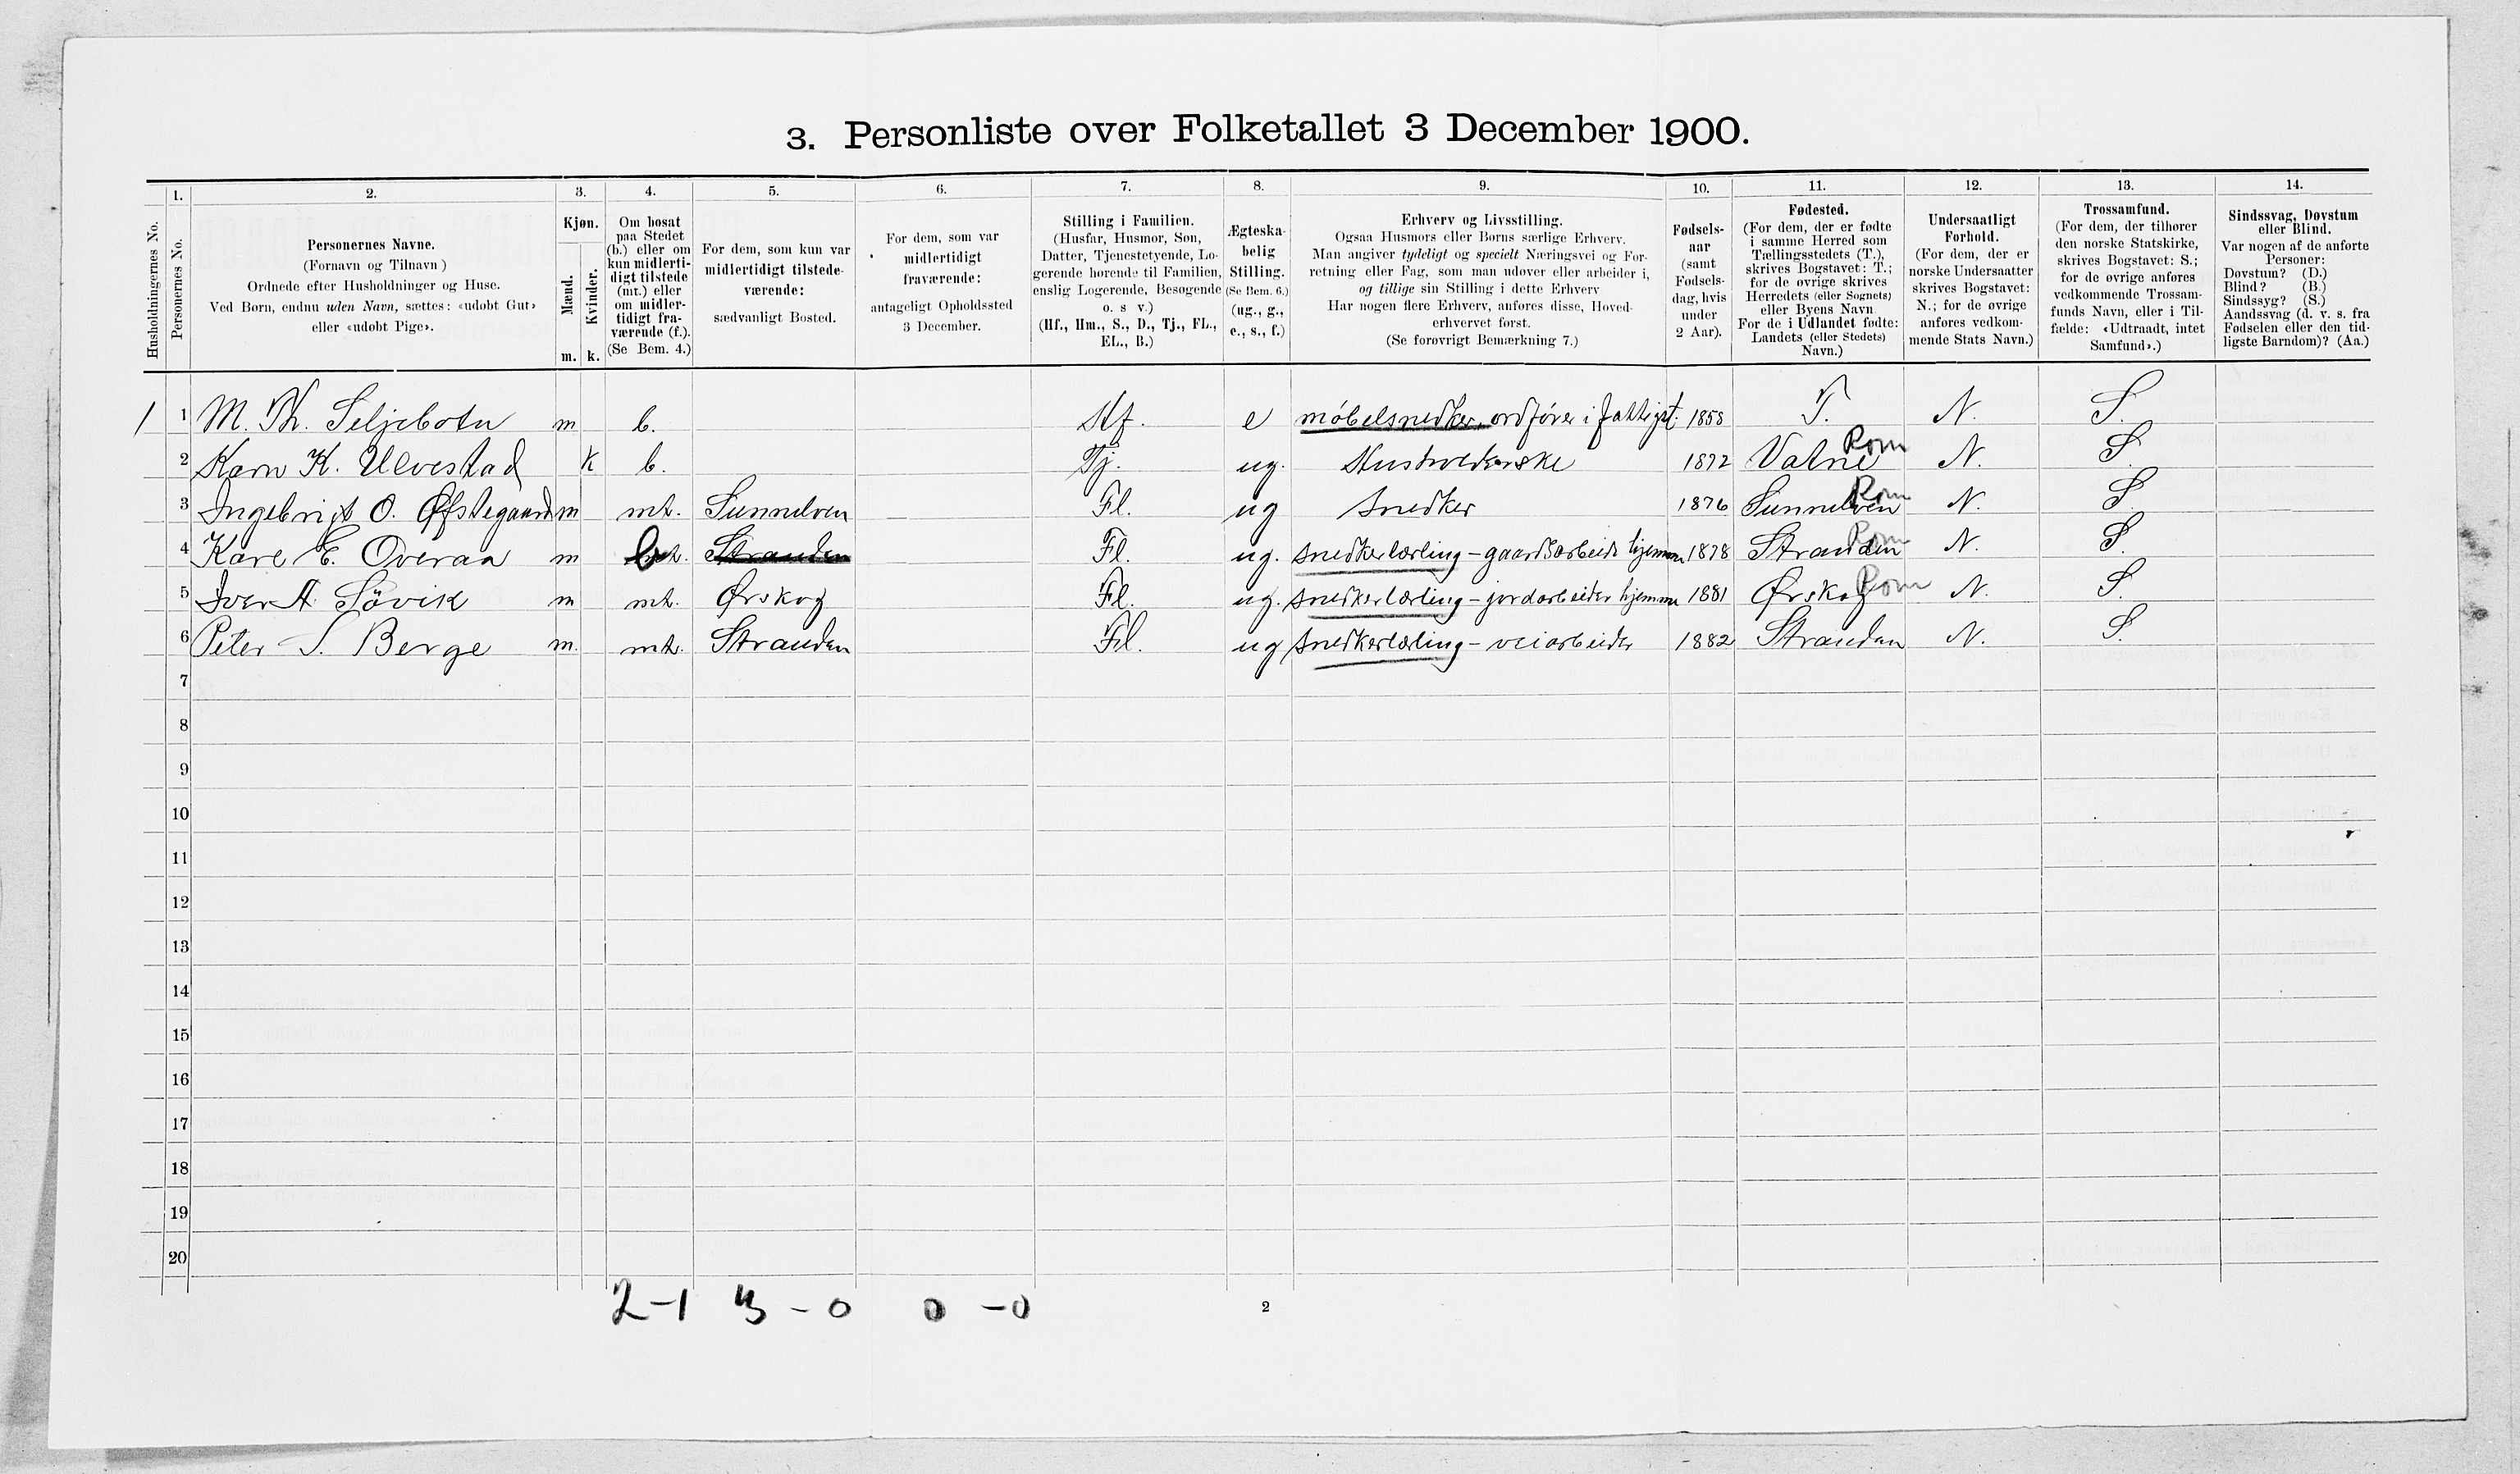 3. Personliste over Folketallet 3 December 1900.
Husholdningernes No.
1.
Personernes No.
2.
Personernes Navne.
(Fornavn og Tilnavn)
Ordnede efter Husholdninger og Huse.
Ved Børn, endnu uden Navn, sættes: «udøbt Gut»
eller «udøbt Pige».
3.
Kjøn.
Mænd.
Kvinder.
m. k.
4.
Om bosat
paa Stedet
(b.) eller om
kun midlerti-
digt tilstede
(mt.) eller
om midler-
tidigt fra-
værende (f.).
(Se Bem. 4.)
5.
For dem, som kun var
midlertidigt tilstede-
værende:
sædvanligt Bosted.
6.
For dem, som var
midlertidigt
fraværende:
antageligt Opholdssted
3 December.
7.
Stilling i Familien.
(Husfar, Husmor, Søn,
Datter, Tjenestetyende, Lo-
gerende hørende til Familien,
enslig Logerende, Besøgende
o. s v.)
(Hf., Hm., S., D., Tj., FL.,
EL., B.)
8.
Ægteska-
belig
Stilling.
(Se Bem. 6.)
(ug., g.,
e., s., f.)
9.
Erhverv og Livsstilling.
Ogsaa Husmors eller Børns særlige Erhverv.
Man angiver tydeligt og specielt Næringsvei og For-
retning eller Fag, som man udøver eller arbeider i,
og tillige sin Stilling i dette Erhverv
Har nogen flere Erhverv, anføres disse, Hoved-
erhvervet først.
(Se forøvrigt Bemærkning 7.)
10.
Fødsels-
aar
(samt
Fødsels-
dag, hvis
under
2 Aar).
11.
Fødested.
(For dem, der er fødte
i samme Herred som
Tællingsstedets (T.),
skrives Bogstavet: T.;
for de øvrige skrives
Herredets (eller Sognets)
eller Byens Navn
For de i Udlandet fødte:
Landets (eller Stedets)
Navn.)
12.
Undersaatligt
Forhold.
(For dem, der er
norske Undersaatter
skrives Bogstavet:
N.; for de øvrige
anføres vedkom-
mende Stats Navn.)
13.
Trossamfund.
(For dem, der tilhører
den norske Statskirke,
skrives Bogstavet: S.;
for de øvrige anføres
vedkommende Trossam-
funds Navn, eller i Til-
fælde: «Udtraadt, intet
Samfund».)
14.
Sindssvag, Døvstum
eller Blind.
Var nogen af de anførte
Personer:
Døvstum? (D.)
Blind? (B.)
Sindssyg? (S.)
Aandssvag (d. v. s. fra
Fødselen eller den tid-
ligste Barndom)? (Aa.)
1 1 M. Th. Seljebotn m b. Hf. e møbelsnedker, ordfører i fattigst. 1858 T. N. S.
2 Karn K. Ulvestad k b. Tj. ug. Husholderske 1872 Vatne Rom N. S.
3 Ingebrigt O. Øfstegaard m mt. Sunnelven Fl. ug snedker 1876 Sunnelven Rom N. S.
4 Kare E. Overaa m b mt. Stranden Fl. ug. snedkerlærling - gaardsarbeide hjemme 1878 Stranden Rom N. S.
5 Iver A. Søvik m mt. Ørskog Fl. ug. snedkerlærling - jordarbeider hjemme 1881 Ørskog Rom N. S.
6 Peter S. Berge m. mt. Stranden Fl. ug snedkerlærling - veiarbeider 1882 Stranden N. S.
7
8
9
10
11
12
13
14
15
16
17
18
19
20
2-1 3 - 0 0 - 0
2